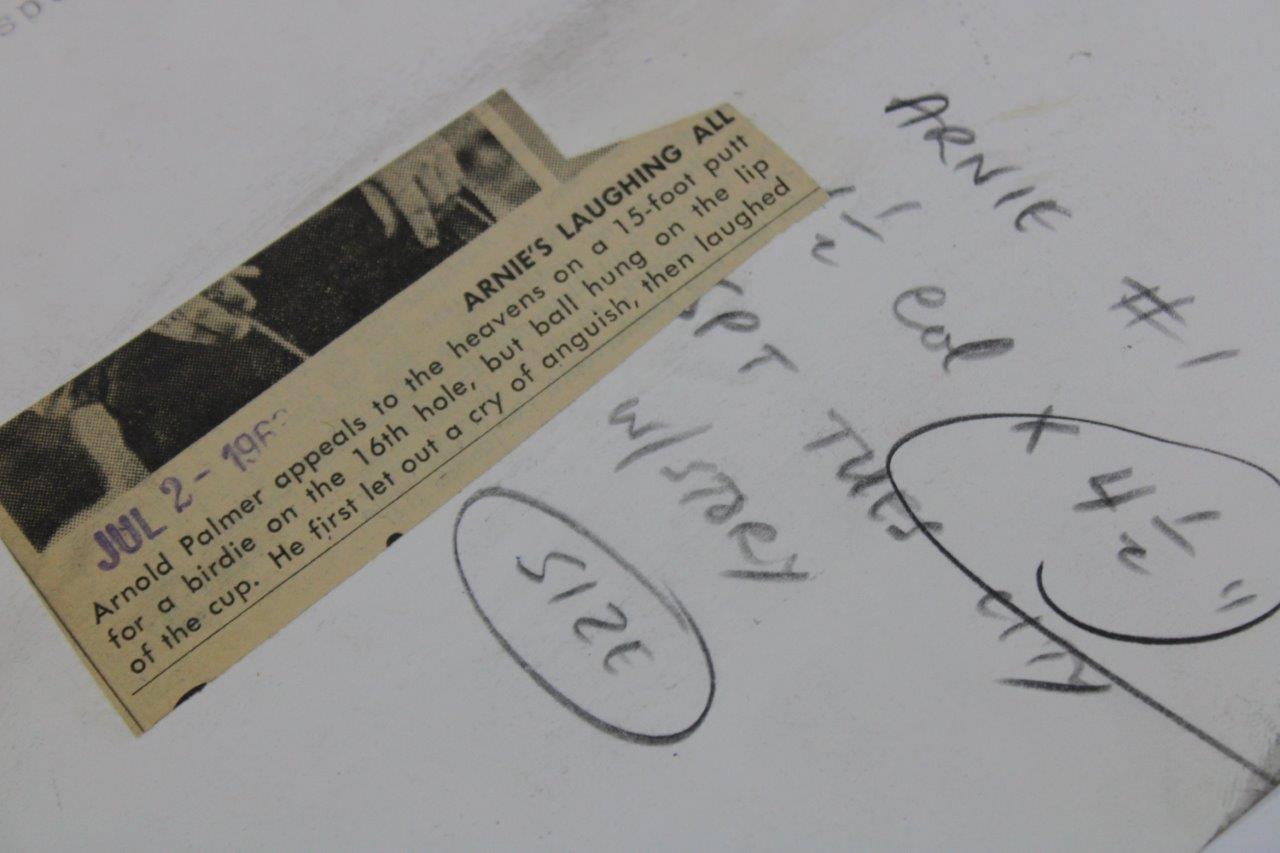 ARNIE'S LAUGHING ALL
JUL 2 - 196
Arnold Palmer appeals to the heavens on a 15-foot putt
for a birdie on the 16th hole, but ball hung on the lip
of the cup. He first let out a cry of anguish, then laughed
ARNIE #1
1/2 Col x 4 1/2"
SPT TUES CITY
W/STORY
SIZE